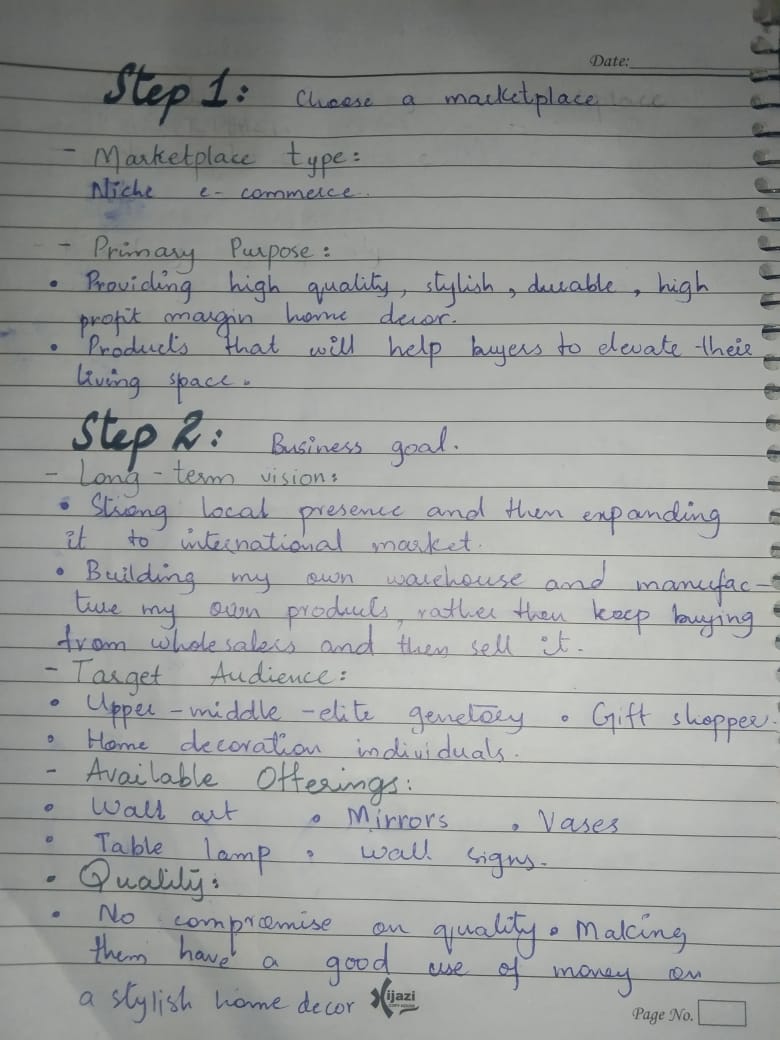 Date:
Step 1: Choose a marketplace
- Marketplace type:
Niche e-commerce.
- Primary Purpose:
• Providing high quality, stylish, durable, high
profit margin home decor.
• Products that will help buyers to elevate their
living space.
Step 2: Business goal.
- Long-term vision:
• Strong local presence and then expanding
it to international market.
• Building my own warehouse and manufac-
ture my own products, rather then keep buying
from wholesalers and then sell it.
- Target Audience:
• Upper-middle-elite • Gift shopper.
• Home decoration individuals.
- Available Offerings:
• Wall art • Mirrors • Vases
• Table lamp • wall signs.
• Quality:
• No compromise on quality • Making
them have a good use of money on
a stylish home decor Hijazi
Page No.